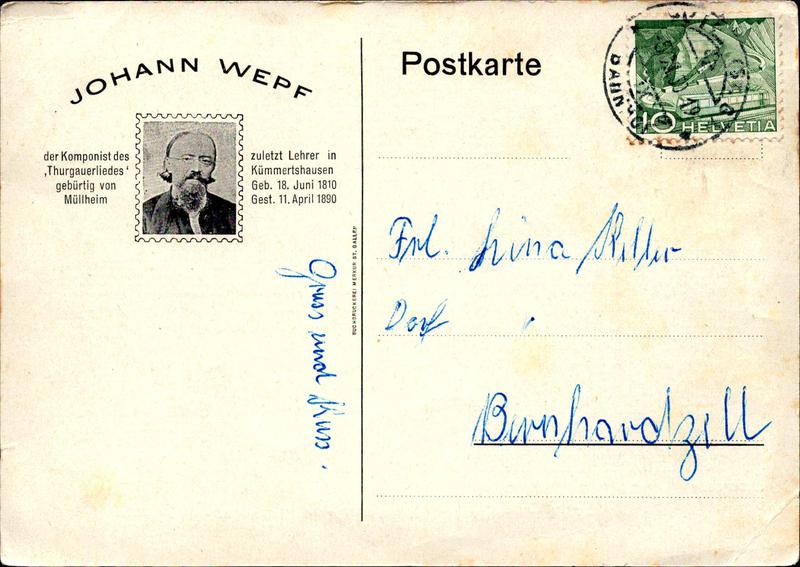 JOHANN WEPF
der Komponist des
„Thurgauerliedes“
gebürtig von
Müllheim
zuletzt Lehrer in
Kümmertshausen
Geb. 18. Juni 1810
Gest. 11. April 1890
Gruss und Kuss.
BUCHDRUCKEREI MERKUR ST. GALLEN
Postkarte
10 HELVETIA
Frl. Lina Keller
Dorf
Bernhardzell